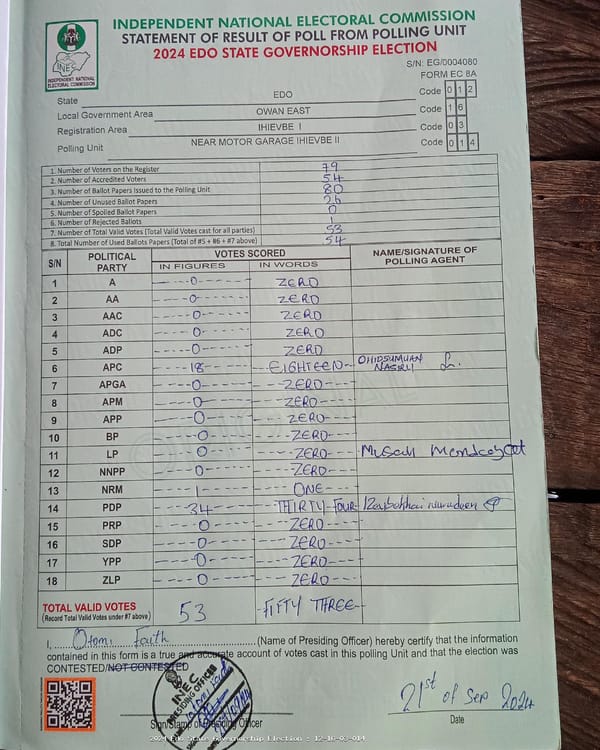 INDEPENDENT NATIONAL ELECTORAL COMMISSION
STATEMENT OF RESULT OF POLL FROM POLLING UNIT
2024 EDO STATE GOVERNORSHIP ELECTION
INEC
INDEPENDENT NATIONAL ELECTORAL COMMISSION
S/N: EG/0004080
FORM EC 8A
State EDO Code 0 1 2
Local Government Area OWAN EAST Code 1 6
Registration Area IHIEVBE I Code 0 3
Polling Unit NEAR MOTOR GARAGE IHIEVBE II Code 0 1 4
1. Number of Voters on the Register 79
2. Number of Accredited Voters 54
3. Number of Ballot Papers Issued to the Polling Unit 80
4. Number of Unused Ballot Papers 26
5. Number of Spoiled Ballot Papers 0
6. Number of Rejected Ballots 1
7. Number of Total Valid Votes (Total Valid Votes cast for all parties) 53
8. Total Number of Used Ballots Papers (Total of #5 + #6 + #7 above) 54
S/N POLITICAL PARTY VOTES SCORED NAME/SIGNATURE OF POLLING AGENT
IN FIGURES IN WORDS
1 A 0 ZERO
2 AA 0 ZERO
3 AAC 0 ZERO
4 ADC 0 ZERO
5 ADP 0 ZERO
6 APC 18 EIGHTEEN NASIRU
7 APGA 0 ZERO
8 APM 0 ZERO
9 APP 0 ZERO
10 BP 0 ZERO
11 LP 0 ZERO Musah
12 NNPP 0 ZERO
13 NRM 1 ONE
14 PDP 34 THIRTY FOUR
15 PRP 0 ZERO
16 SDP 0 ZERO
17 YPP 0 ZERO
18 ZLP 0 ZERO
TOTAL VALID VOTES 53 FIFTY THREE
(Record Total Valid Votes under #7 above)
I, Otomi Faith (Name of Presiding Officer) hereby certify that the information
contained in this form is a true and accurate account of votes cast in this polling Unit and that the election was
CONTESTED/NOT CONTESTED
INEC
PRESIDING OFFICER
21st of Sep 2024
Sign/Stamp of Presiding Officer
Date
2024 Edo State Governorship Election : 12-16-03-014